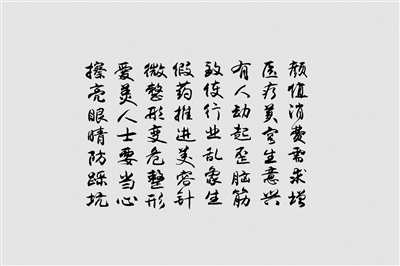 颜值消费需求增
医疗美容生意兴
有人动起歪脑筋
致使行业乱象生
假药推进美容针
微整形变危整形
爱美人士要当心
擦亮眼睛防踩坑